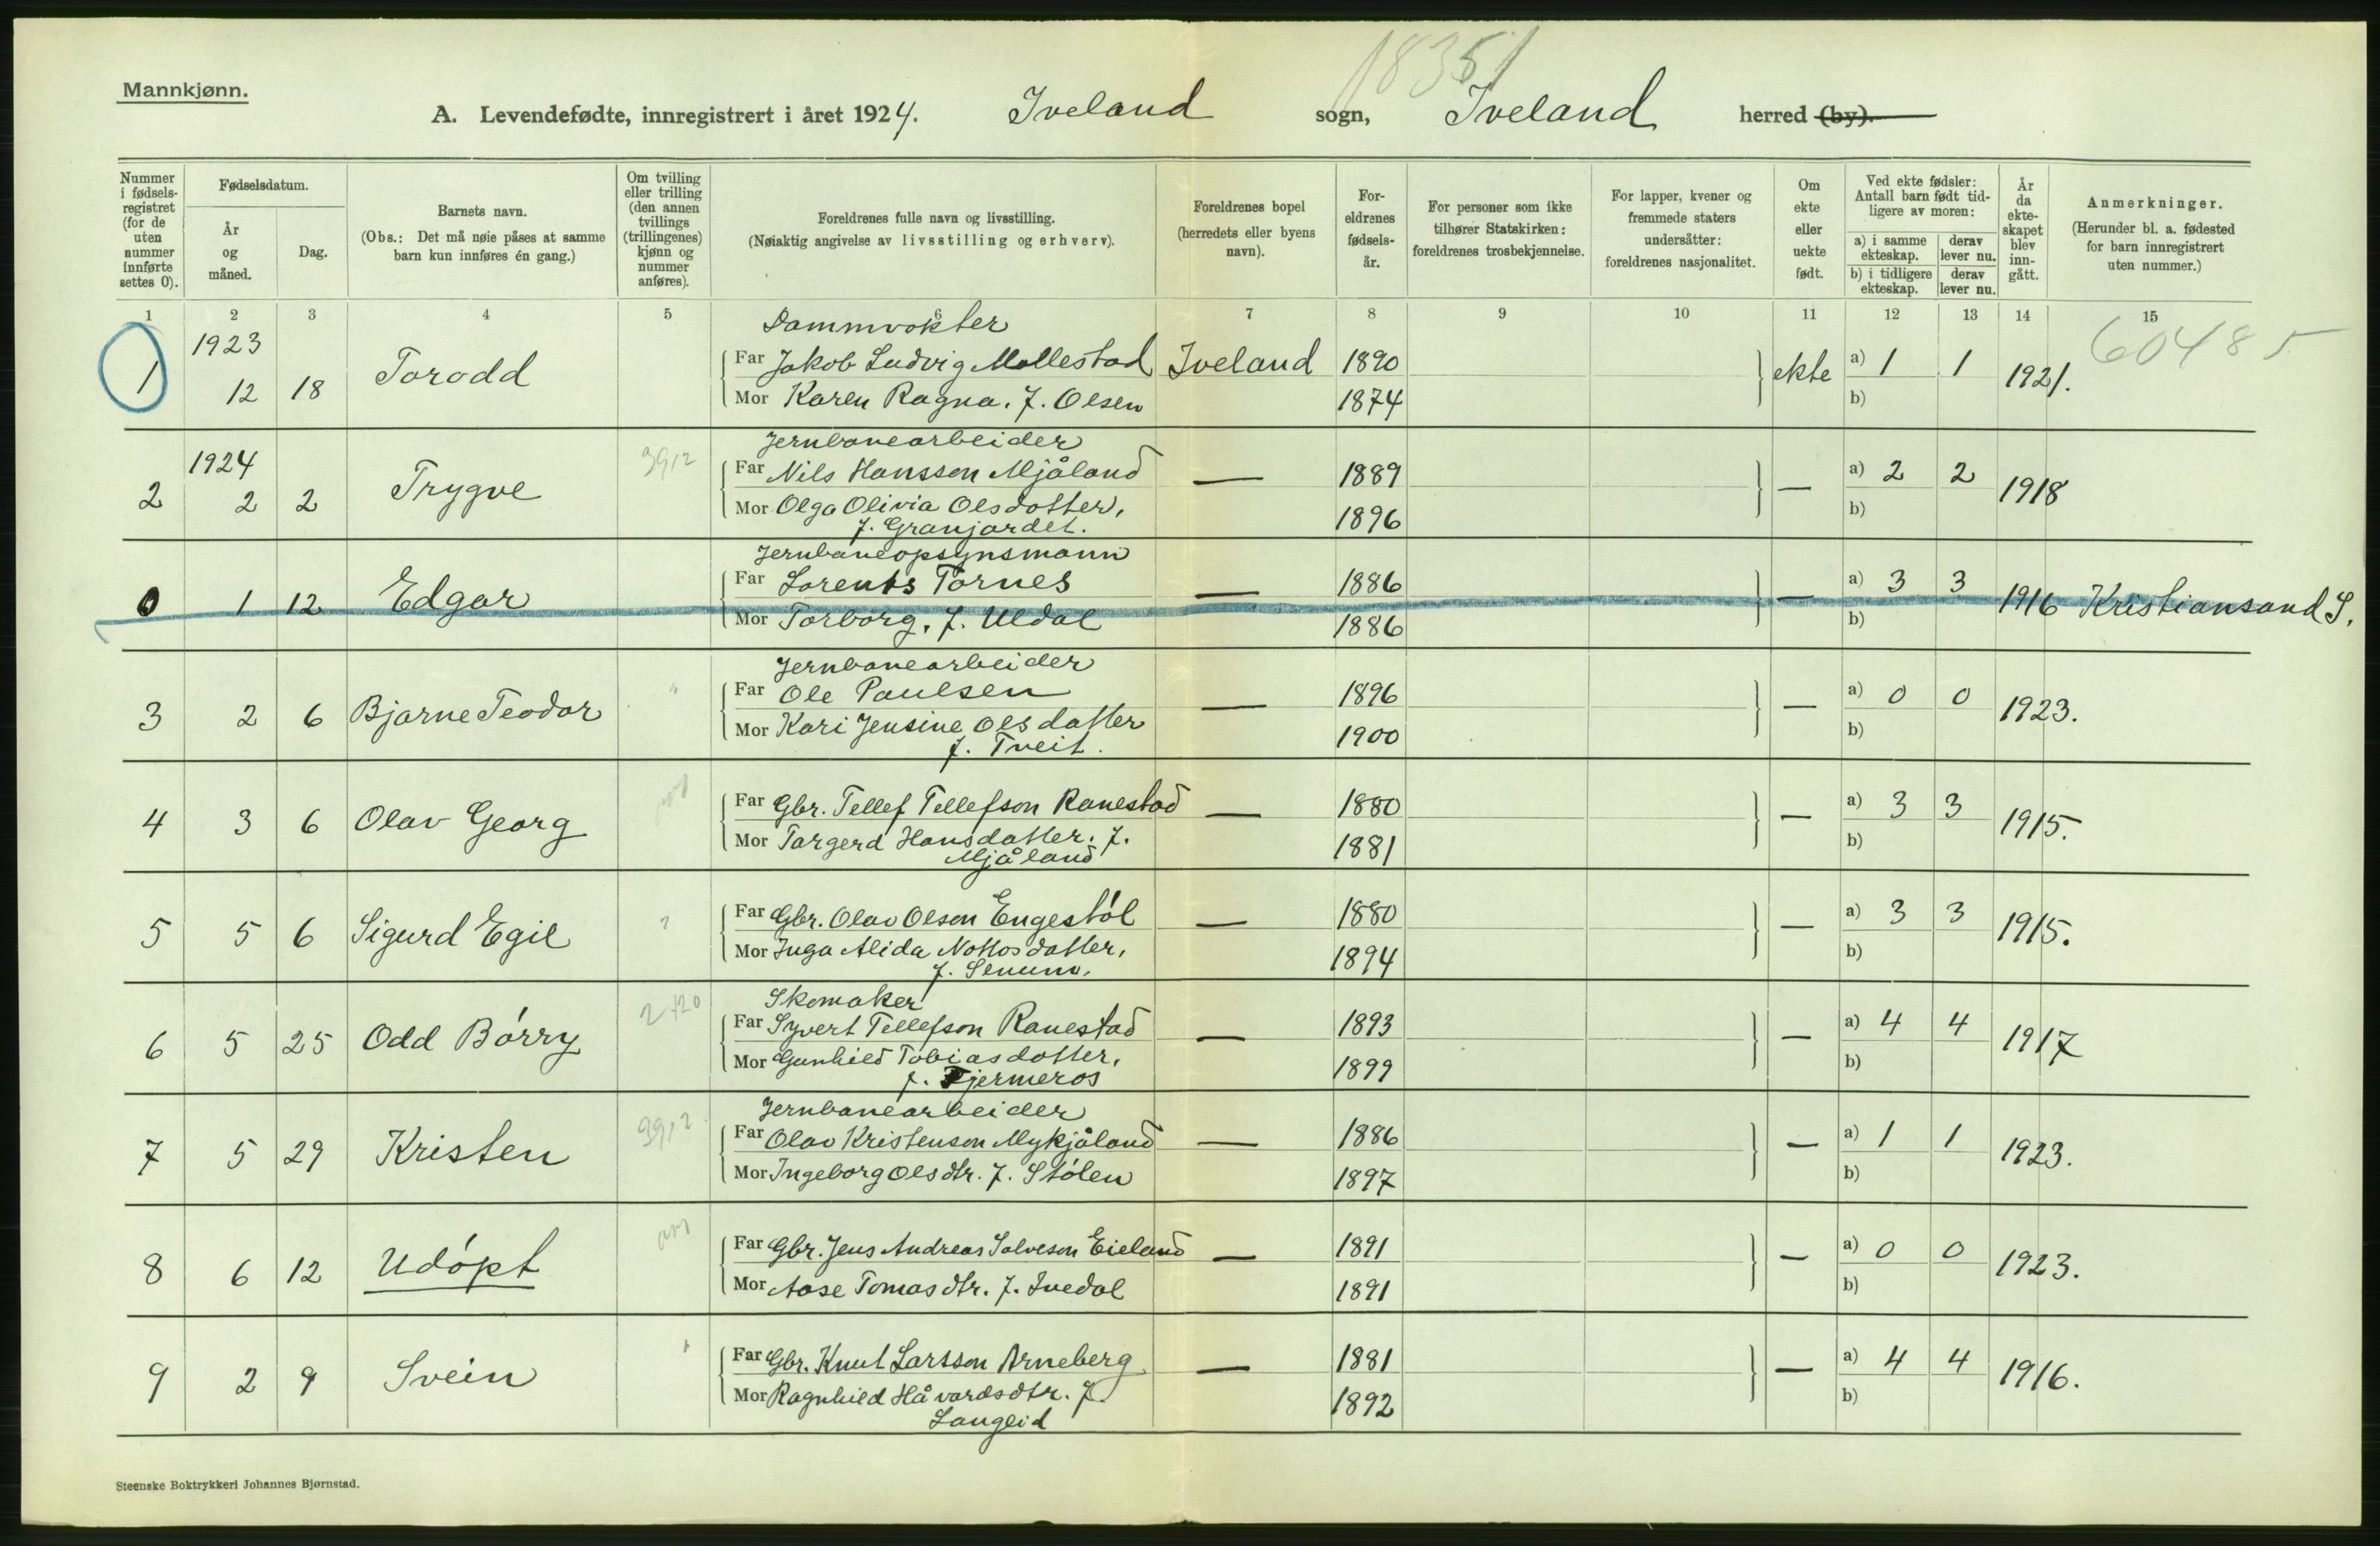 18351
Mannkjønn.
A. Levendefødte, innregistrert i året 1924. Iveland sogn, Iveland herred (by).
Nummer i fødsels-registret (for de uten nummer innførte settes 0).
Fødselsdatum.
År og måned.
Dag.
Barnets navn.
(Obs.: Det må nøie påses at samme barn kun innføres én gang.)
Om tvilling eller trilling (den annen tvillings (trillingenes) kjønn og nummer anføres).
Foreldrenes fulle navn og livsstilling.
(Nøiaktig angivelse av livsstilling og erhverv).
Foreldrenes bopel (herredets eller byens navn).
For-eldrenes fødsels-år.
For personer som ikke tilhører Statskirken: foreldrenes trosbekjennelse.
For lapper, kvener og fremmede staters undersåtter: foreldrenes nasjonalitet.
Om ekte eller uekte født.
Ved ekte fødsler: Antall barn født tid-ligere av moren:
a) i samme ekteskap. derav lever nu.
b) i tidligere ekteskap. derav lever nu.
År da ekte-skapet blev inn-gått.
Anmerkninger.
(Herunder bl. a. fødested for barn innregistrert uten nummer.)
1 2 3 4 5 6 7 8 9 10 11 12 13 14 15
Dammvokter
1923
1 12 18 Torodd Far Jakob Ludvig Mollestad Iveland 1890 ekte a) 1 1 1921. 60485
Mor Karen Ragna. f. Olsen 1874 b)
Jernbanearbeider
1924
2 2 2 Trygve 3912 Far Nils Hansson Mjåland — 1889 — a) 2 2 1918
Mor Olga Olivia Olsdotter, 1896 b)
f. Granjordet.
Jernbaneopsynsmann
0 1 12 Edgar Far Lorents Tornes — 1886 — a) 3 3 1916 Kristiansand S.
Mor Torborg, f. Uldal 1886 b)
Jernbanearbeider
3 2 6 Bjarne Teodor " Far Ole Paulsen — 1896 — a) 0 0 1923.
Mor Kari Jensine Olsdatter 1900 b)
f. Tveit.
4 3 6 Olav Georg Far Gbr. Tellef Tellefson Ranestad — 1880 — a) 3 3 1915.
Mor Targerd Hansdatter. f. 1881 b)
Mjåland
5 5 6 Sigurd Egil Far Gbr. Olav Olson Engestøl — 1880 — a) 3 3 1915.
Mor Inga Alida Nottosdatter, 1894 b)
f. Senum.
Skomaker
6 5 25 Odd Børry Far Syvert Tellefson Ranestad — 1893 — a) 4 4 1917
Mor Gunhild Tobiasdotter, 1899 b)
f. Fjermeros
Jernbanearbeider
7 5 29 Kristen 3912 Far Olav Kristenson Mykjåland — 1886 — a) 1 1 1923.
Mor Ingeborg Olsdtr. f. Stølen 1897 b)
8 6 12 Udøpt Far Gbr. Jens Andreas Salveson Eieland — 1891 — a) 0 0 1923.
Mor Aase Tomasdtr. f. Ivedal 1891 b)
9 2 9 Svein Far Gbr. Knut Larsson Arneberg — 1881 — a) 4 4 1916.
Mor Ragnhild Håvardsdtr. f. 1892 b)
Langeid
Steenske Boktrykkeri Johannes Bjørnstad.